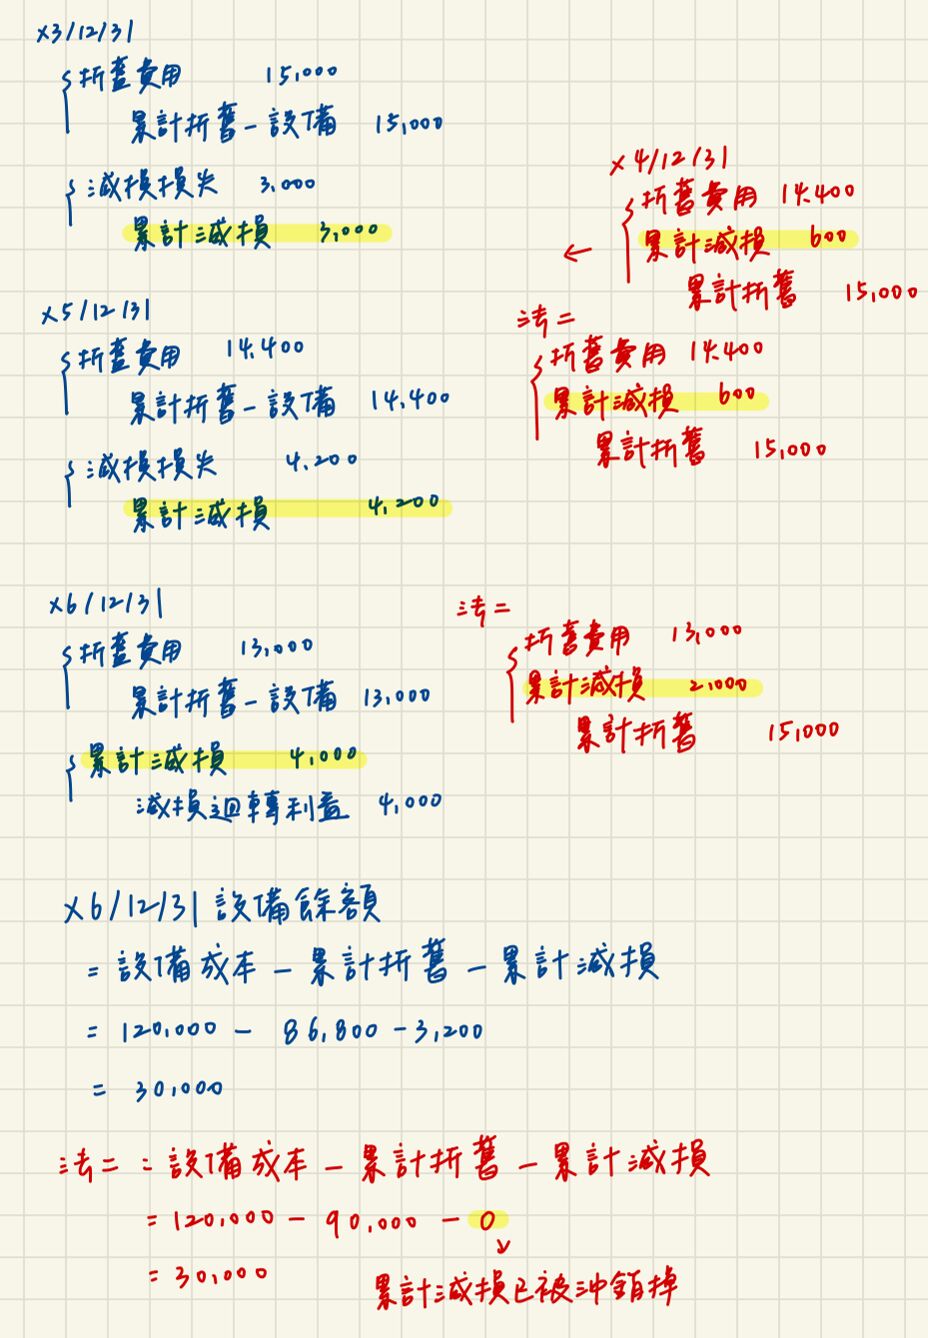 x3/12/31
折舊費用 15,000
累計折舊-設備 15,000
減損損失 3,000
累計減損 3,000
x4/12/31
折舊費用 14,400
累計減損 600
累計折舊 15,000
←
x5/12/31
折舊費用 14,400
累計折舊-設備 14,400
減損損失 4,200
累計減損 4,200
法二
折舊費用 14,400
累計減損 600
累計折舊 15,000
x6/12/31
折舊費用 13,000
累計折舊-設備 13,000
累計減損 4,000
減損迴轉利益 4,000
法二
折舊費用 13,000
累計減損 2,000
累計折舊 15,000
x6/12/31 設備餘額
= 設備成本 - 累計折舊 - 累計減損
= 120,000 - 86,800 - 3,200
= 30,000
法二 = 設備成本 - 累計折舊 - 累計減損
= 120,000 - 90,000 - 0
= 30,000
累計減損已被沖銷掉